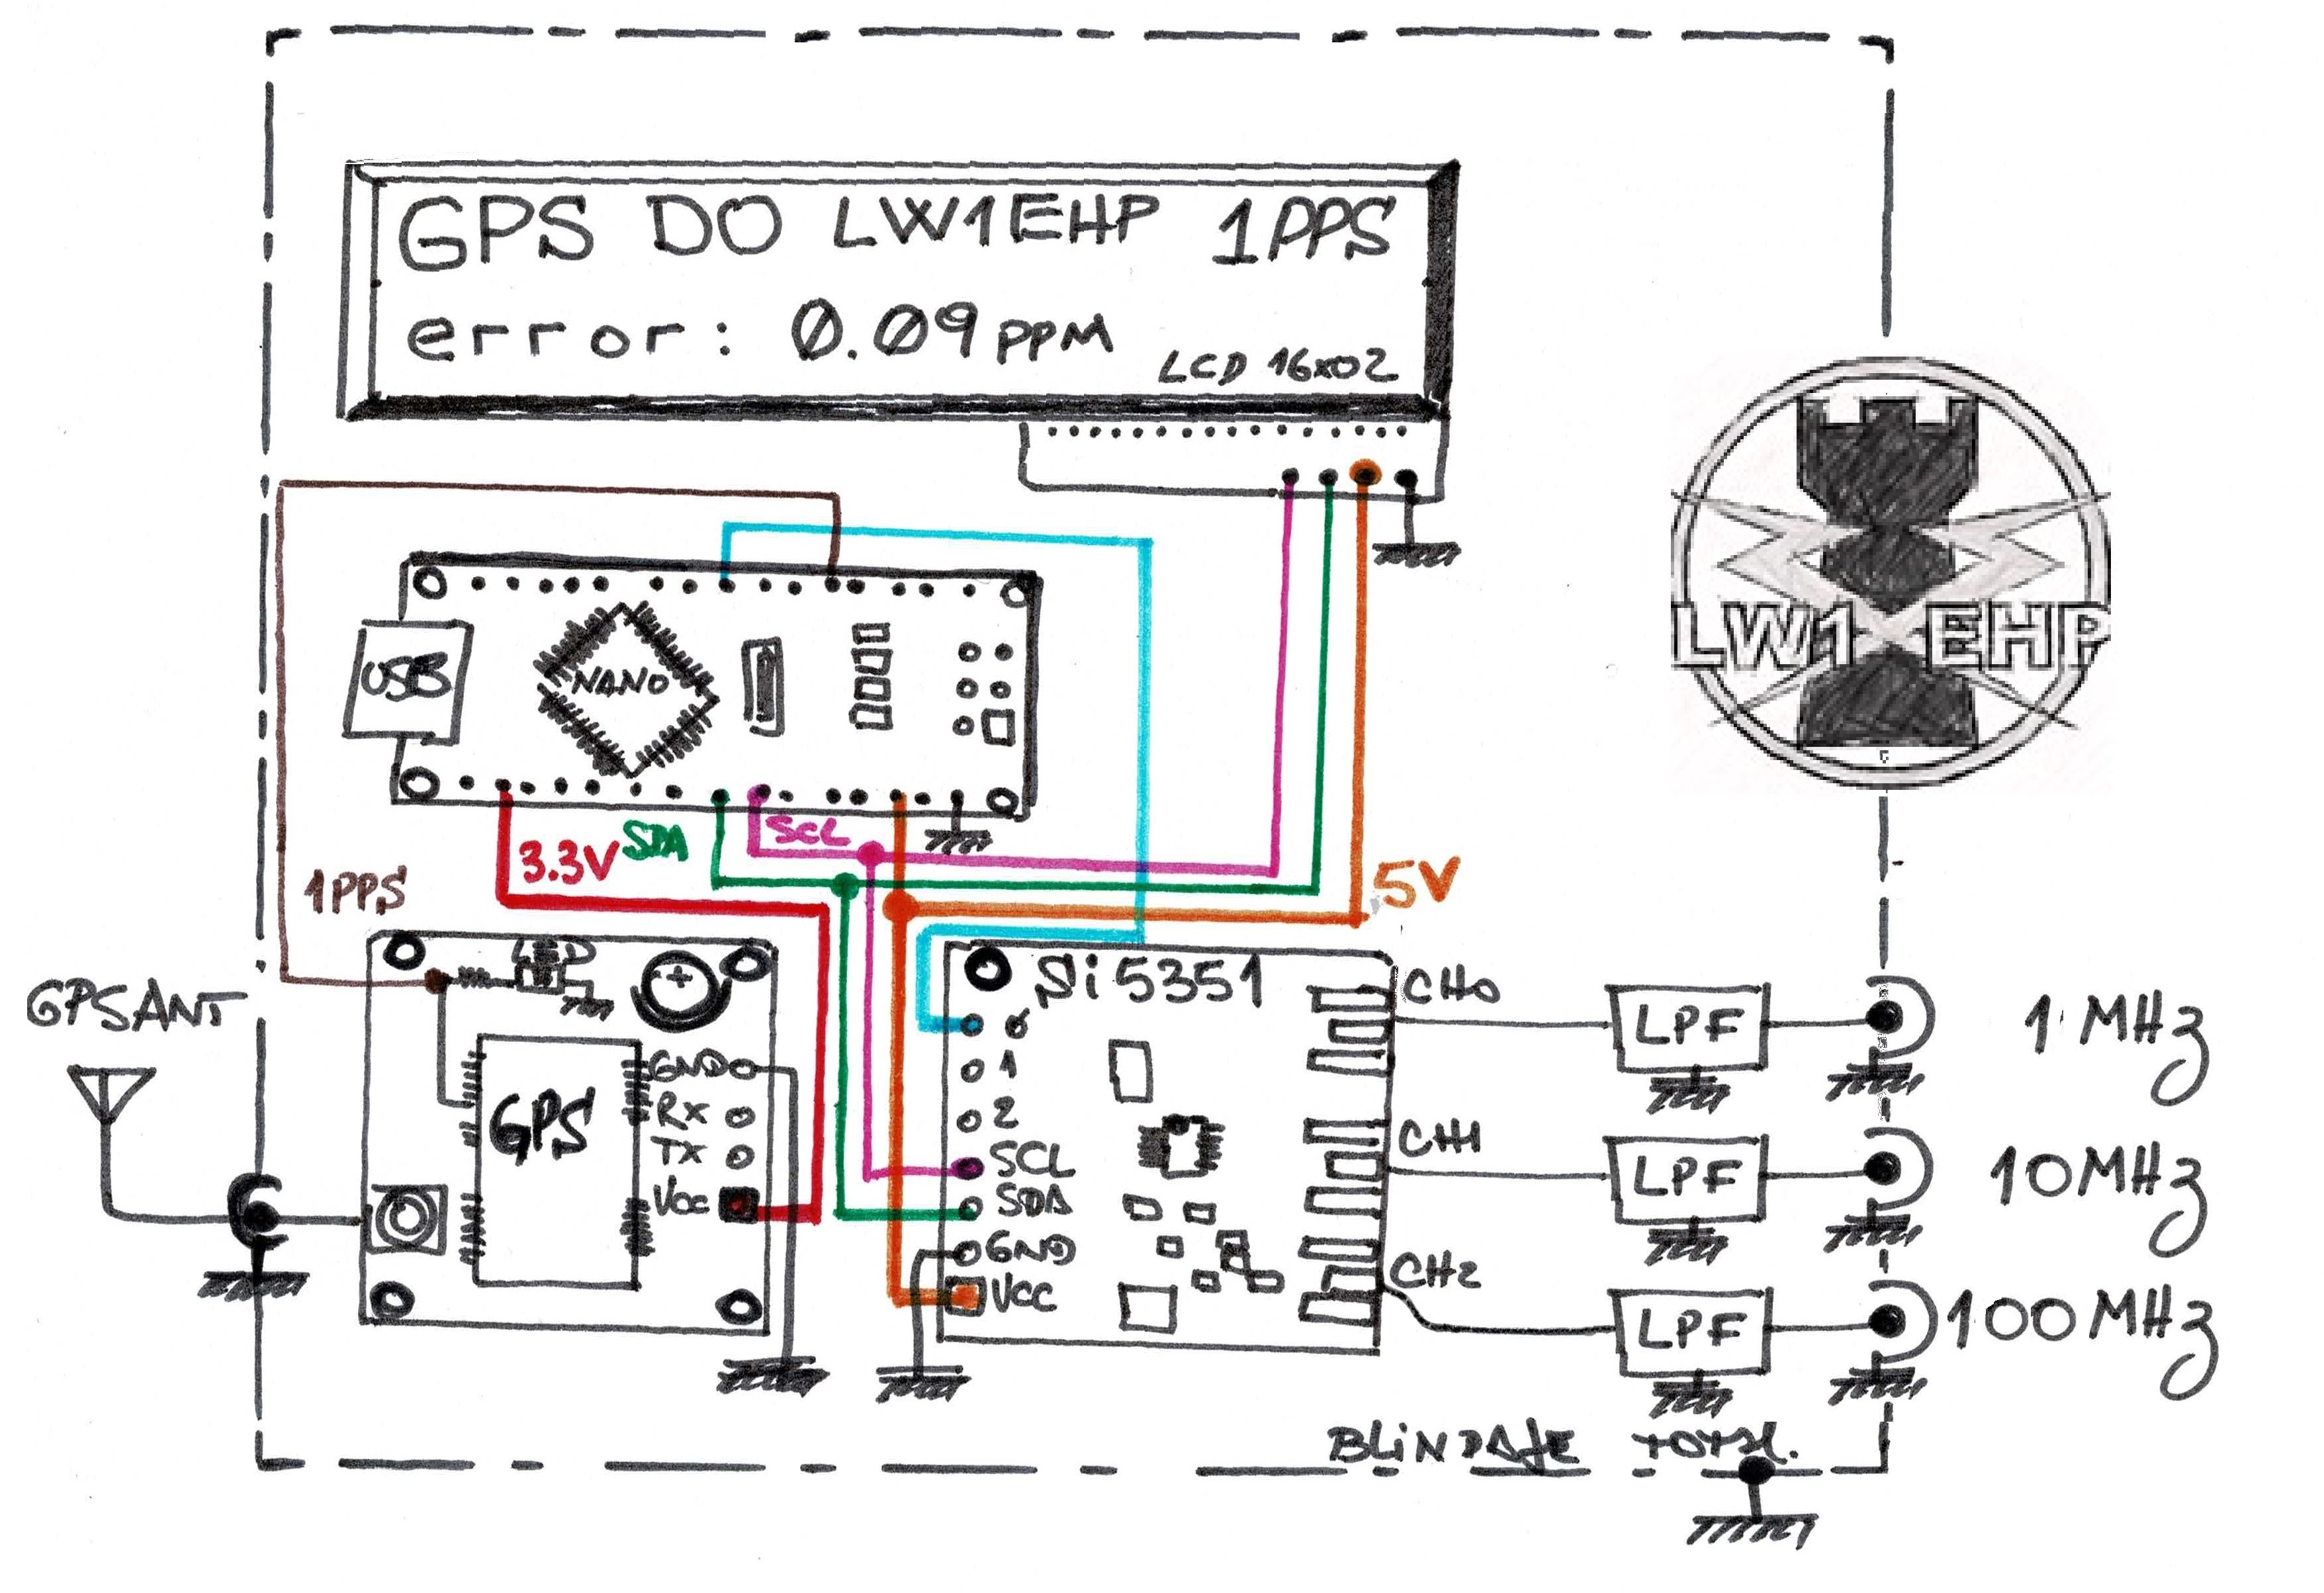 GPS DO LW1EHP 1PPS
error: 0.09 PPM
LCD 16x02
LW1 EHP
USB
NANO
3.3V
SDA
SCL
5V
1PPS
GPS ANT
LED
GPS
GND
Rx
TX
Vcc
Si5351
0
1
2
SCL
SDA
GND
VCC
CH0
LPF
1 MHz
CH1
LPF
10MHz
CH2
LPF
100MHz
BLINDAJE TOTAL.